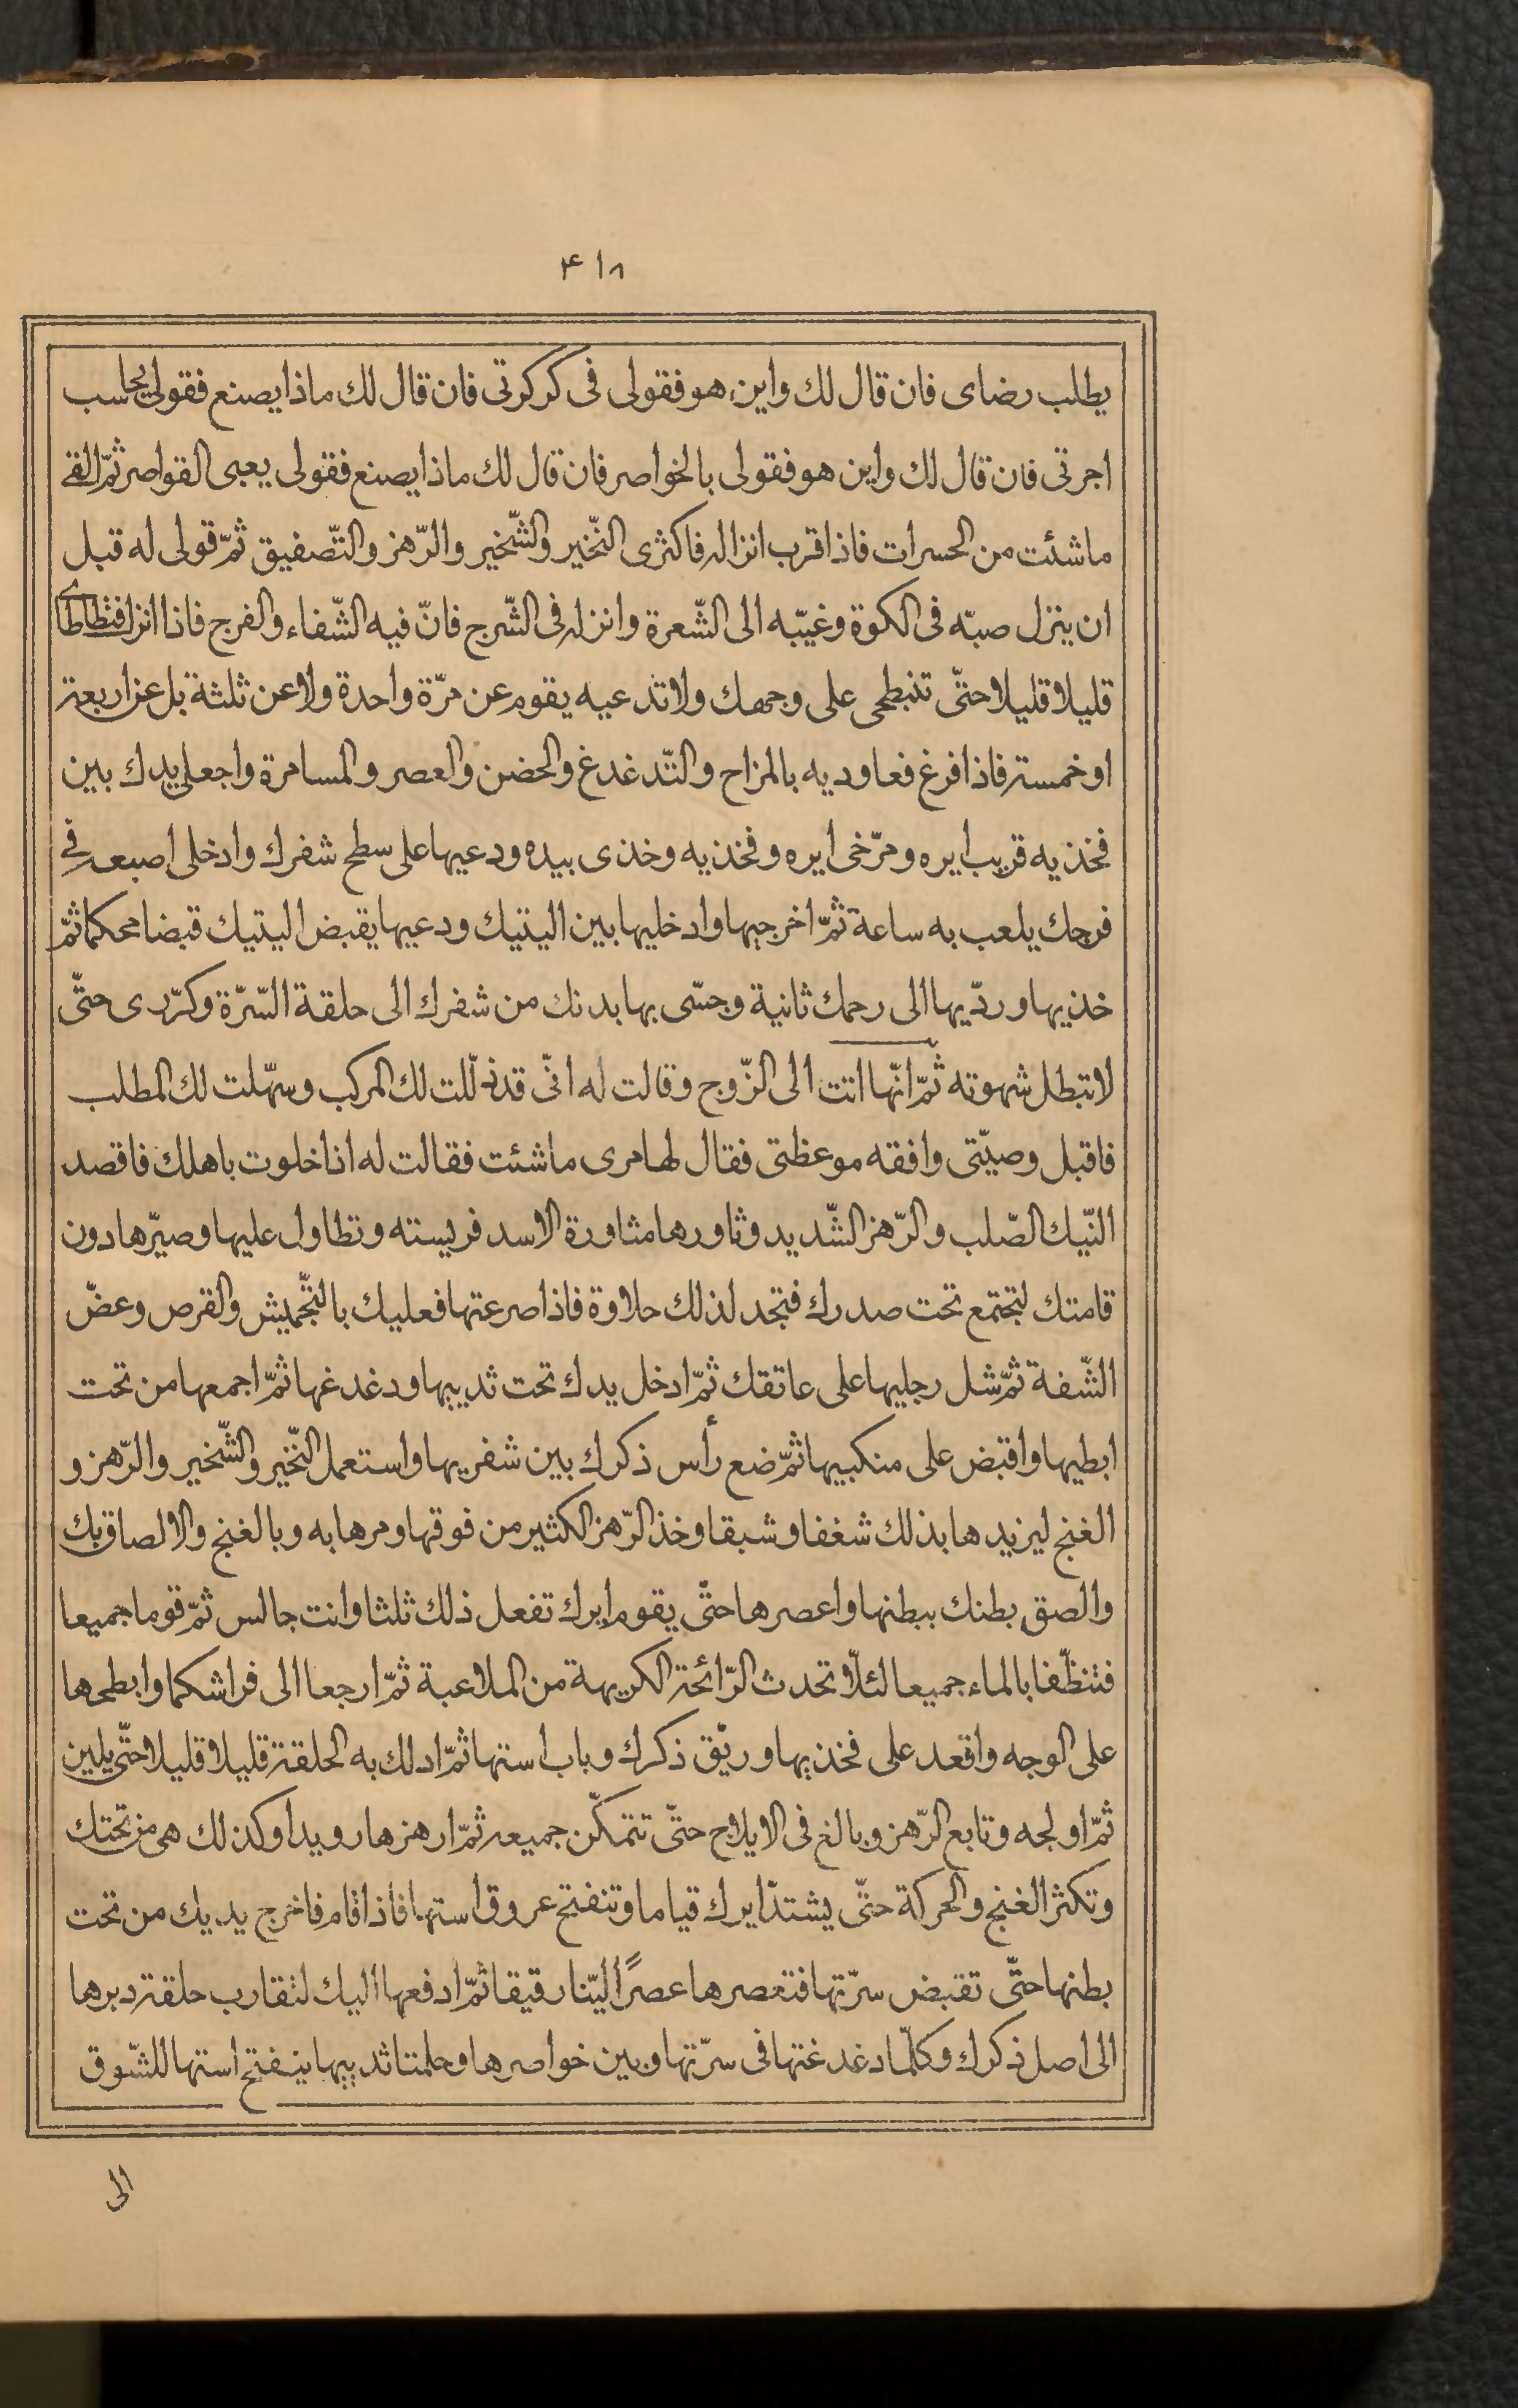 ۴۱۸
يطلب رضاى فان قال لك واين هو فقولى فى كركرتى فان قال لك ماذا يصنع فقولى يحاسب
اجرتى فان قال لك واين هو فقولى بالخواصر فان قال لك ماذا يصنع فقولى يعبى القواصر ثمّ القى
ماشئت من الحسرات فاذا قرب انزاله فاكثرى النّخير والشّخير والرّهز والتّصفيق ثمّ قولى له قبل
ان ينزل صبّه فى الكوة وغيّبه الى الشّعرة وانزله فى الشّرج فانّ فيه الشّفاء والفرج فاذا انزل فتطاطاى
قليلا قليلا حتّى تنبطحى على وجهك ولا تدعيه يقوم عن مرّة واحدة ولا عن ثلثة بل عن اربعة
او خمسة فاذا فرغ فعاوديه بالمزاح والتّدغدغ والحضن والعصر والمسامرة واجعلى يدك بين
فخذيه قريب ايره ومرّخى ايره وفخذيه وخذى بيده ودعيها على سطح شفرك وادخلى اصبعه فى
فرجك يلعب به ساعة ثمّ اخرجيها وادخليها بين اليتيك ودعيها يقبض اليتيك قبضا محكما ثمّ
خذيها وردّيها الى رحمك ثانية وجسّى بها بدنك من شفرك الى حلقة السّرّة وكرّرى حتّى
لا تبطل شهوته ثمّ انّها اتت الى الزّوج وقالت له انّى قد ذلّلت لك المركب وسهّلت لك المطلب
فاقبل وصيّتى وافقه موعظتى فقال لها مرى ماشئت فقالت له اذا خلوت باهلك فاقصد
النّيك الصّلب والرّهز الشّديد وثاورها مثاورة الاسد فريسته وتطاول عليها وصيّرها دون
قامتك لتجتمع تحت صدرك فتجد لذلك حلاوة فاذا صرعتها فعليك بالتّجميش والقرص وعضّ
الشّفة ثمّ شل رجليها على عاتقك ثمّ ادخل يدك تحت ثدييها ودغدغها ثمّ اجمعها من تحت
ابطيها واقبض على منكبيها ثمّ ضع رأس ذكرك بين شفريها واستعمل النّخير والشّخير والرّهز و
الغنج ليزيدها بذلك شغفا وشبقا وخذ الرّهز الكثير من فوقها ومرها به وبالغنج والالصاق بك
والصق بطنك ببطنها واعصرها حتّى يقوم ايرك تفعل ذلك ثلثا وانت جالس ثمّ قوما جميعا
فتنظّفا بالماء جميعا لئلّا تحدث الرّائحة الكريهة من الملاعبة ثمّ ارجعا الى فراشكما وابطحها
على الوجه واقعد على فخذيها وريّق ذكرك وباب استها ثمّ ادلك به الحلقة قليلا قليلا حتّى يلين
ثمّ اولجه وتابع الرّهز وبالغ فى الايلاج حتّى تتمكّن جميعه ثمّ ارهزها رويدا وكذلك هى من تحتك
وتكثر الغنج والحركة حتّى يشتدّ ايرك قياما وتنفتح عروق استها فاذا قام فاخرج يديك من تحت
بطنها حتّى تقبض سرّتها فتعصرها عصرًا ليّنا رقيقا ثمّ ادفعها اليك لتقارب حلقة دبرها
الى اصل ذكرك وكلّما دغدغتها فى سرّتها وبين خواصرها وحلمتا ثدييها ينفتح استها للشّوق
الى